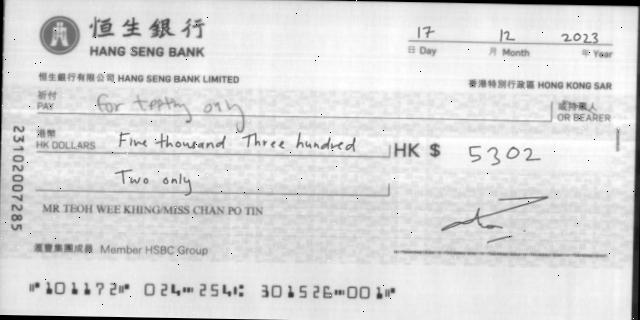 恒生銀行
HANG SENG BANK
17 12 2023
日 Day 月 Month 年 Year
恒生銀行有限公司 HANG SENG BANK LIMITED
香港特別行政區 HONG KONG SAR
祈付
PAY
For only
或持票人
OR BEARER
港幣
HK DOLLARS
Five thousand Three hundred
HK $ 5302
Two only
MR TEOH WEE KHING/MISS CHAN PO TIN
滙豐集團成員 Member HSBC Group
23102007285
⑈101172⑈ 024⑉254⑆ 301526⑉001⑈